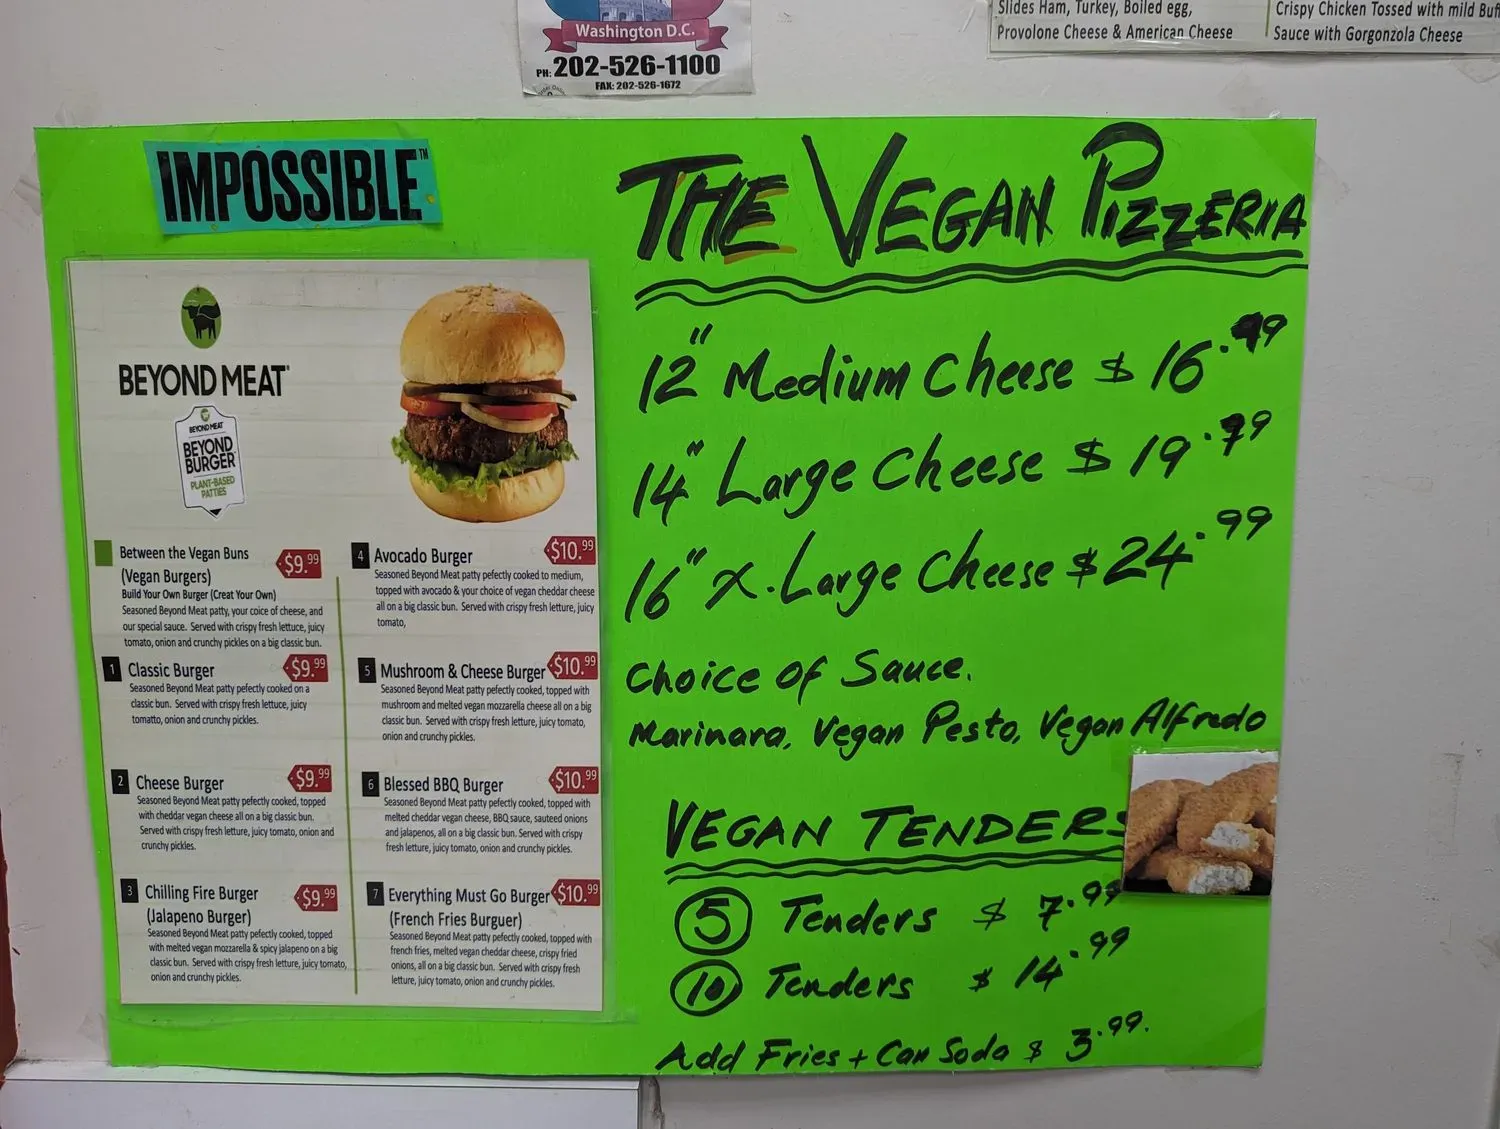 Washington D.C.
PH: 202-526-1100
FAX: 202-526-1672
Slides Ham, Turkey, Boiled egg,
Provolone Cheese & American Cheese
Crispy Chicken Tossed with mild Buf
Sauce with Gorgonzola Cheese
IMPOSSIBLE™
BEYOND MEAT®
BEYOND MEAT
BEYOND
BURGER
PLANT-BASED
PATTIES
Between the Vegan Buns $9.99
(Vegan Burgers)
Build Your Own Burger (Creat Your Own)
Seasoned Beyond Meat patty, your coice of cheese, and
our special sauce. Served with crispy fresh lettuce, juicy
tomato, onion and crunchy pickles on a big classic bun.
1 Classic Burger $9.99
Seasoned Beyond Meat patty pefectly cooked on a
classic bun. Served with crispy fresh letture, juicy
tomatto, onion and crunchy pickles.
2 Cheese Burger $9.99
Seasoned Beyond Meat patty pefectly cooked, topped
with cheddar vegan cheese all on a big classic bun.
Served with crispy fresh letture, juicy tomato, onion and
crunchy pickles.
3 Chilling Fire Burger $9.99
(Jalapeno Burger)
Seasoned Beyond Meat patty pefectly cooked, topped
with melted vegan mozzarella & spicy jalapeno on a big
classic bun. Served with crispy fresh letture, juicy tomato,
onion and crunchy pickles.
4 Avocado Burger $10.99
Seasoned Beyond Meat patty pefectly cooked to medium,
topped with avocado & your choice of vegan cheddar cheese
all on a big classic bun. Served with crispy fresh letture, juicy
tomato,
5 Mushroom & Cheese Burger $10.99
Seasoned Beyond Meat patty pefectly cooked, topped with
mushroom and melted vegan mozzarella cheese all on a big
classic bun. Served with crispy fresh letture, juicy tomato,
onion and crunchy pickles.
6 Blessed BBQ Burger $10.99
Seasoned Beyond Meat patty pefectly cooked, topped with
melted cheddar vegan cheese, BBQ sauce, sauteed onions
and jalapenos, all on a big classic bun. Served with crispy
fresh letture, juicy tomato, onion and crunchy pickles.
7 Everything Must Go Burger $10.99
(French Fries Burguer)
Seasoned Beyond Meat patty pefectly cooked, topped with
french fries, melted vegan cheddar cheese, crispy fried
onions, all on a big classic bun. Served with crispy fresh
letture, juicy tomato, onion and crunchy pickles.
THE VEGAN PIZZERIA
12" Medium Cheese $16.99
14" Large Cheese $19.99
16" X-Large Cheese $24.99
Choice of Sauce.
Marinara, Vegan Pesto, Vegan Alfredo
VEGAN TENDERS
5 Tenders $7.99
10 Tenders $14.99
Add Fries + Can Soda $3.99.